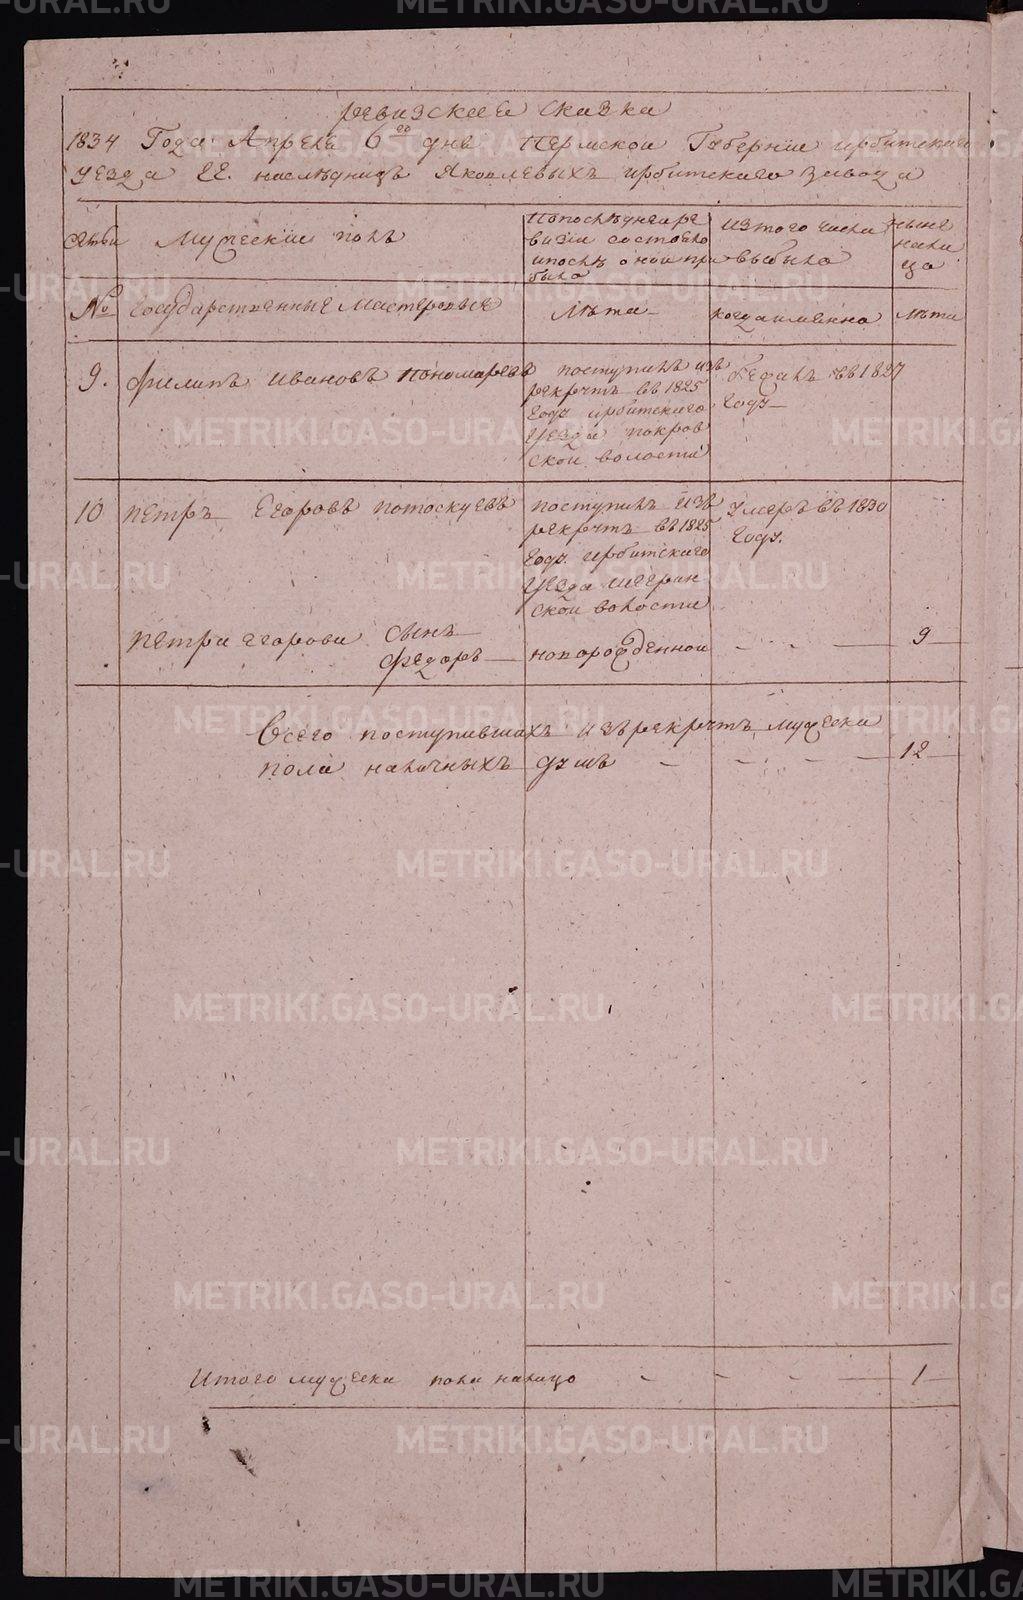 Ревизская сказка
1834 Года Апреля 6го дня Пермской Губернии ирбитского
уезда ГГ. наследницъ Яковлевыхъ ирбитского завода
семьи
Мужескии полъ
По последней ре
визии состояло
и после оной при
было
из того числа
выбыло
ныне
нали
цо
№
Государственные мастеровые
Лѣта
когда именно
лѣта
9.
Филипъ Ивановъ Пономаревъ
поступилъ изъ
рекрутъ въ 1825
году ирбитского
уезда покров
ской волости
бежалъ въ 1827
году
10
Петръ Егоровъ Потоскуевъ
поступилъ изъ
рекрутъ въ 1825
году ирбитского
уезда шогрин
ской волости
умеръ въ 1830
году.
Петра Егорова сынъ
Федоръ
новорожденной
9
Всего поступившихъ изъ рекрутъ мужеска
пола наличныхъ душъ
12
Итого мужеска пола налицо
1
METRIKI.GASO-URAL.RU